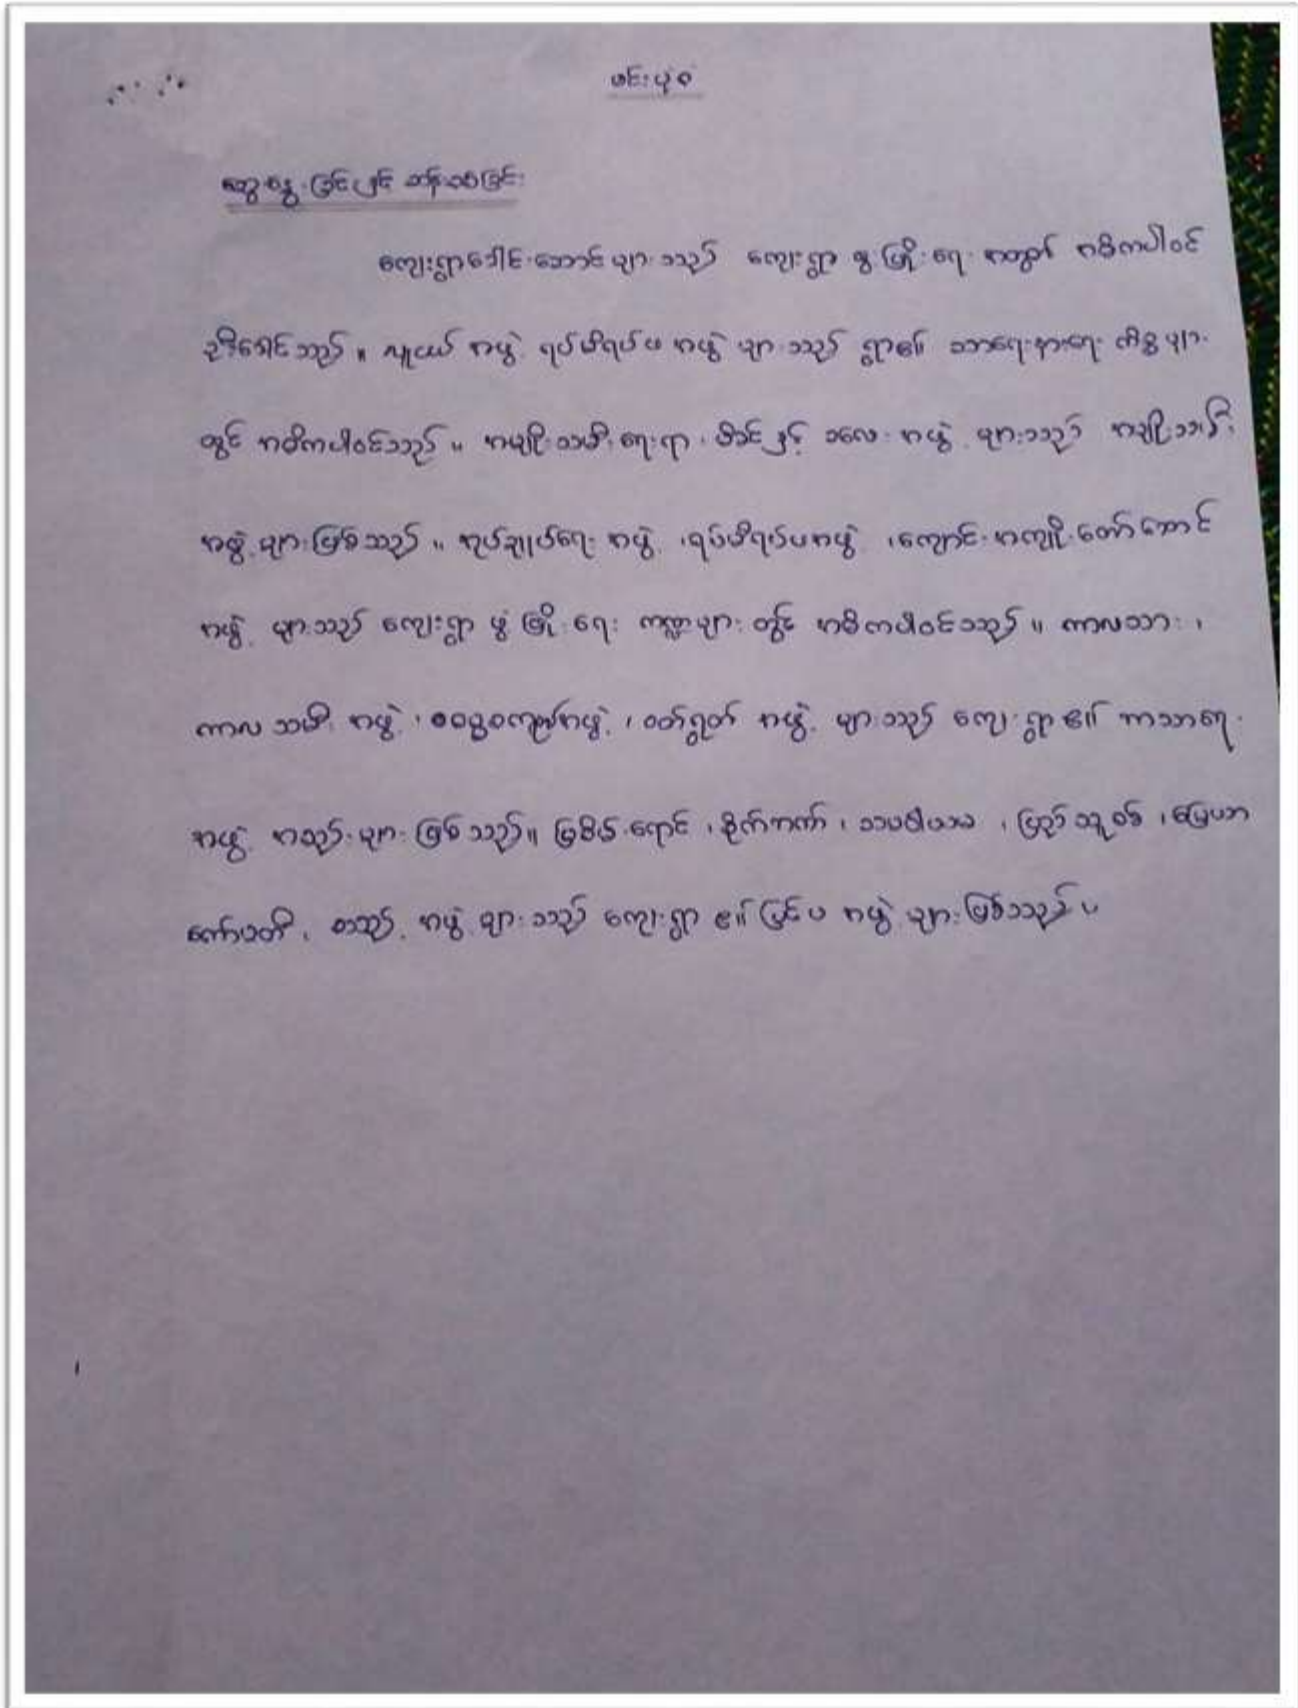 ဗင်းပုံစံ
ဆွေးနွေးခြင်းနှင့် ဆန်းစစ်ခြင်း
ကျေးရွာခေါင်းဆောင်များသည် ကျေးရွာ ဖွံ့ဖြိုးရေး အတွက် အဓိကပါဝင်
ဦးခေါင်သည်။ လူငယ် အဖွဲ့ ရပ်မိရပ်ဖ အဖွဲ့ များသည် ရွာ၏ သာရေးနာရေး ကိစ္စများ
တွင် အဓိကပါဝင်သည်။ အမျိုးသမီးရေးရာ၊ မိခင်နှင့် ကလေး အဖွဲ့ များသည် အမျိုးသမီး
အဖွဲ့များ ဖြစ်သည်။ အုပ်ချုပ်ရေး အဖွဲ့၊ ရပ်မိရပ်ဖအဖွဲ့၊ ကျောင်းအကျိုးတော်ဆောင်
အဖွဲ့ များသည် ကျေးရွာ ဖွံ့ဖြိုးရေး ကဏ္ဍများ တွင် အဓိကပါဝင်သည်။ ကာလသား၊
ကာလသမီး အဖွဲ့၊ အဖွဲ့၊ ဝတ်ရွတ် အဖွဲ့ များသည် ကျေးရွာ၏ ဘာသာရေး
အဖွဲ့ အစည်းများ ဖြစ်သည်။ မြစိမ်းရောင်၊ ၊ ပြည်သူ့ ၊
စသည့် အဖွဲ့များသည် ကျေးရွာ၏ ပြင်ပ အဖွဲ့များ ဖြစ်သည်။